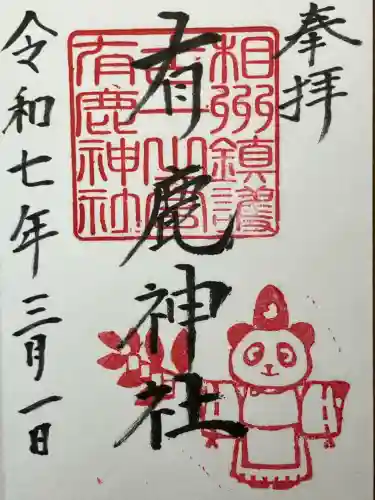 奉拝
有鹿神社
令和七年三月一日
相州鎮護
有鹿神社